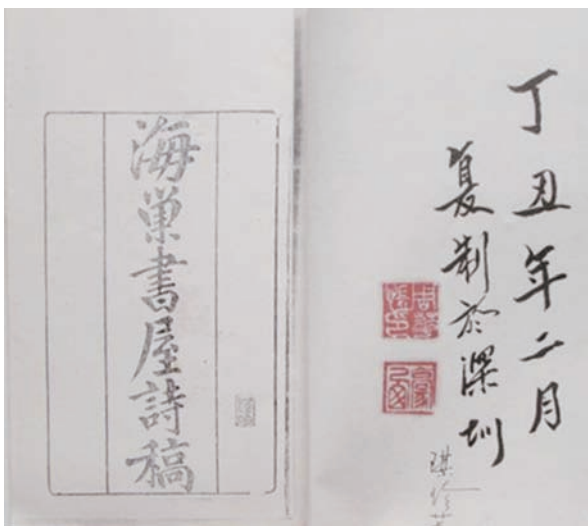 丁丑年二月
复制於深圳
海巢書屋詩稿